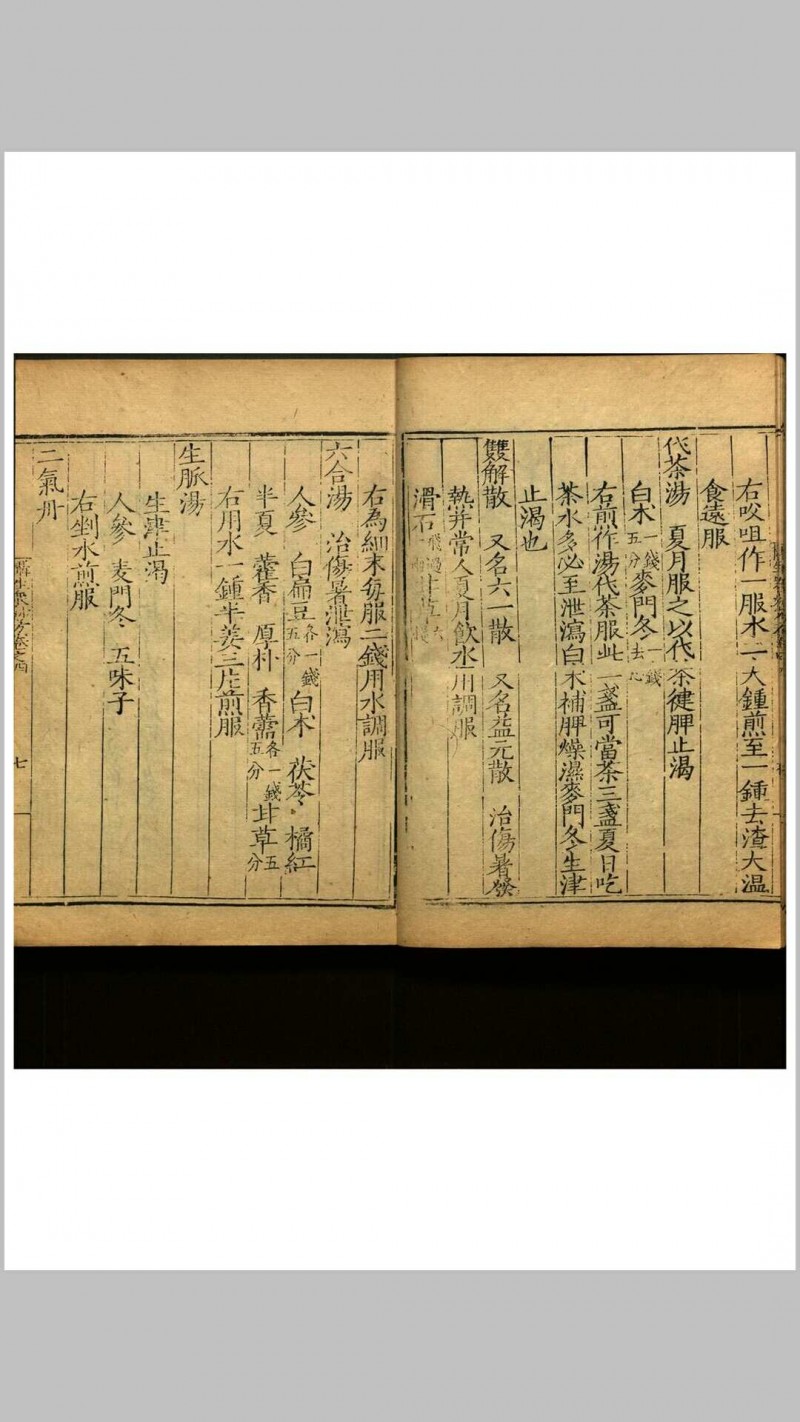 右㕮咀作一服水二大鍾煎至一鍾去渣大温
食遠服
代茶湯 夏月服之以代茶健脾止渴
白术一錢五分麥門冬一錢去心
右煎作湯代茶服此一盞可當茶三盞夏日吃
茶水多必至泄瀉白术補脾燥濕麥門冬生津
止渴也
雙解散 又名六一散 又名益元散 治傷暑發
熱并常人夏月飲水一用調服
滑石飛過 甘草
右為細末每服二錢用水調服
六合湯 治傷暑泄瀉
人參 白扁豆各一錢五分白术 茯苓 橘紅
半夏 藿香 厚朴 香薷各一錢五分甘草五分
右用水一鍾半姜三片煎服
生脈湯
生津止渴
人參 麦門冬 五味子
右剉水煎服
二氣丹
攝生衆妙方卷之四
七